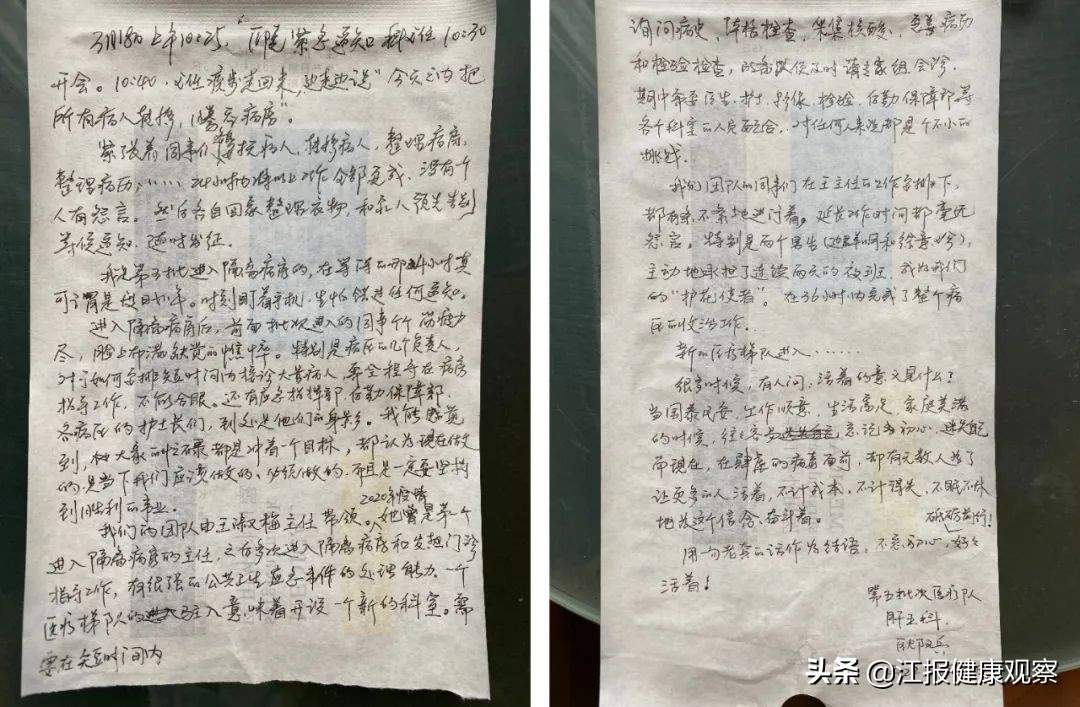 3月18日上午10:25,医院紧急通知科主任10:30
开会。10:40,主任疾步走回来,边走边说“今天之内把
所有病人转移,腾空病房”。
紧张着同事们转移病人,整理病房,
整理病历,……24小时内以上工作全部完成,没有一个
人有怨言。然后各自回家整理衣物,和家人预先告别
等候通知,随时出征。
我是第五批进入隔离病房的,在等待的那24小时真
可谓是度日如年。时刻盯着手机,生怕错过任何通知。
进入隔离病房后,前面批次进入的同事个个筋疲力
尽,脸上布满缺觉的憔悴。特别是病区的几个负责人,
对于如何安排短时间内接诊大量病人,要全程守在病房
指导工作,不能合眼。还有应急指挥部,后勤保障部,
各病区的护士长们,到处是他们的身影。我能感觉
到,大家的忙碌都是冲着一个目标,都认为现在做
的,是当下我们应该做的,必须做的,而且是一定要坚持
到胜利的事业。
我们的团队由王淑梅主任带领。2020年疫情她曾是第一个
进入隔离病房的主任,之后多次进入隔离病房和发热门诊
指导工作,有很强的公共卫生应急事件的处理能力。一个
医疗梯队的进入意味着开设一个新的科室。需
要在短时间内
询问病史、体格检查,采集核酸,完善病历
和检验检查,
期中牵扯医生、护士、影像、检验、后勤保障部等
各个科室的人员配合。对任何人来说都是个不小的
挑战。
我们团队的同事们在王主任的工作安排下,
都有条不紊地进行着。延长工作时间都毫无
怨言。特别是两个男生
主动地承担了连续两天的夜班,成为我们
的“护花使者”。在36小时内完成了整个病
区的收治工作。
新的医疗梯队进入……
很多时候,有人问,活着的意义是什么?
当国泰民安,工作顺意,生活富足,家庭美满
的时候,往往容易忘记初心,迷失自己
而现在,在肆虐的病毒面前,却有无数人为了
让更多的人活着,不计成本,不计得失,不眠不休
地为这个信念奋斗着。
用句老套的话作为结语:不忘初心,砥砺前行!好好
活着!
第五批次医疗队
肝五科
头条 @江报健康观察